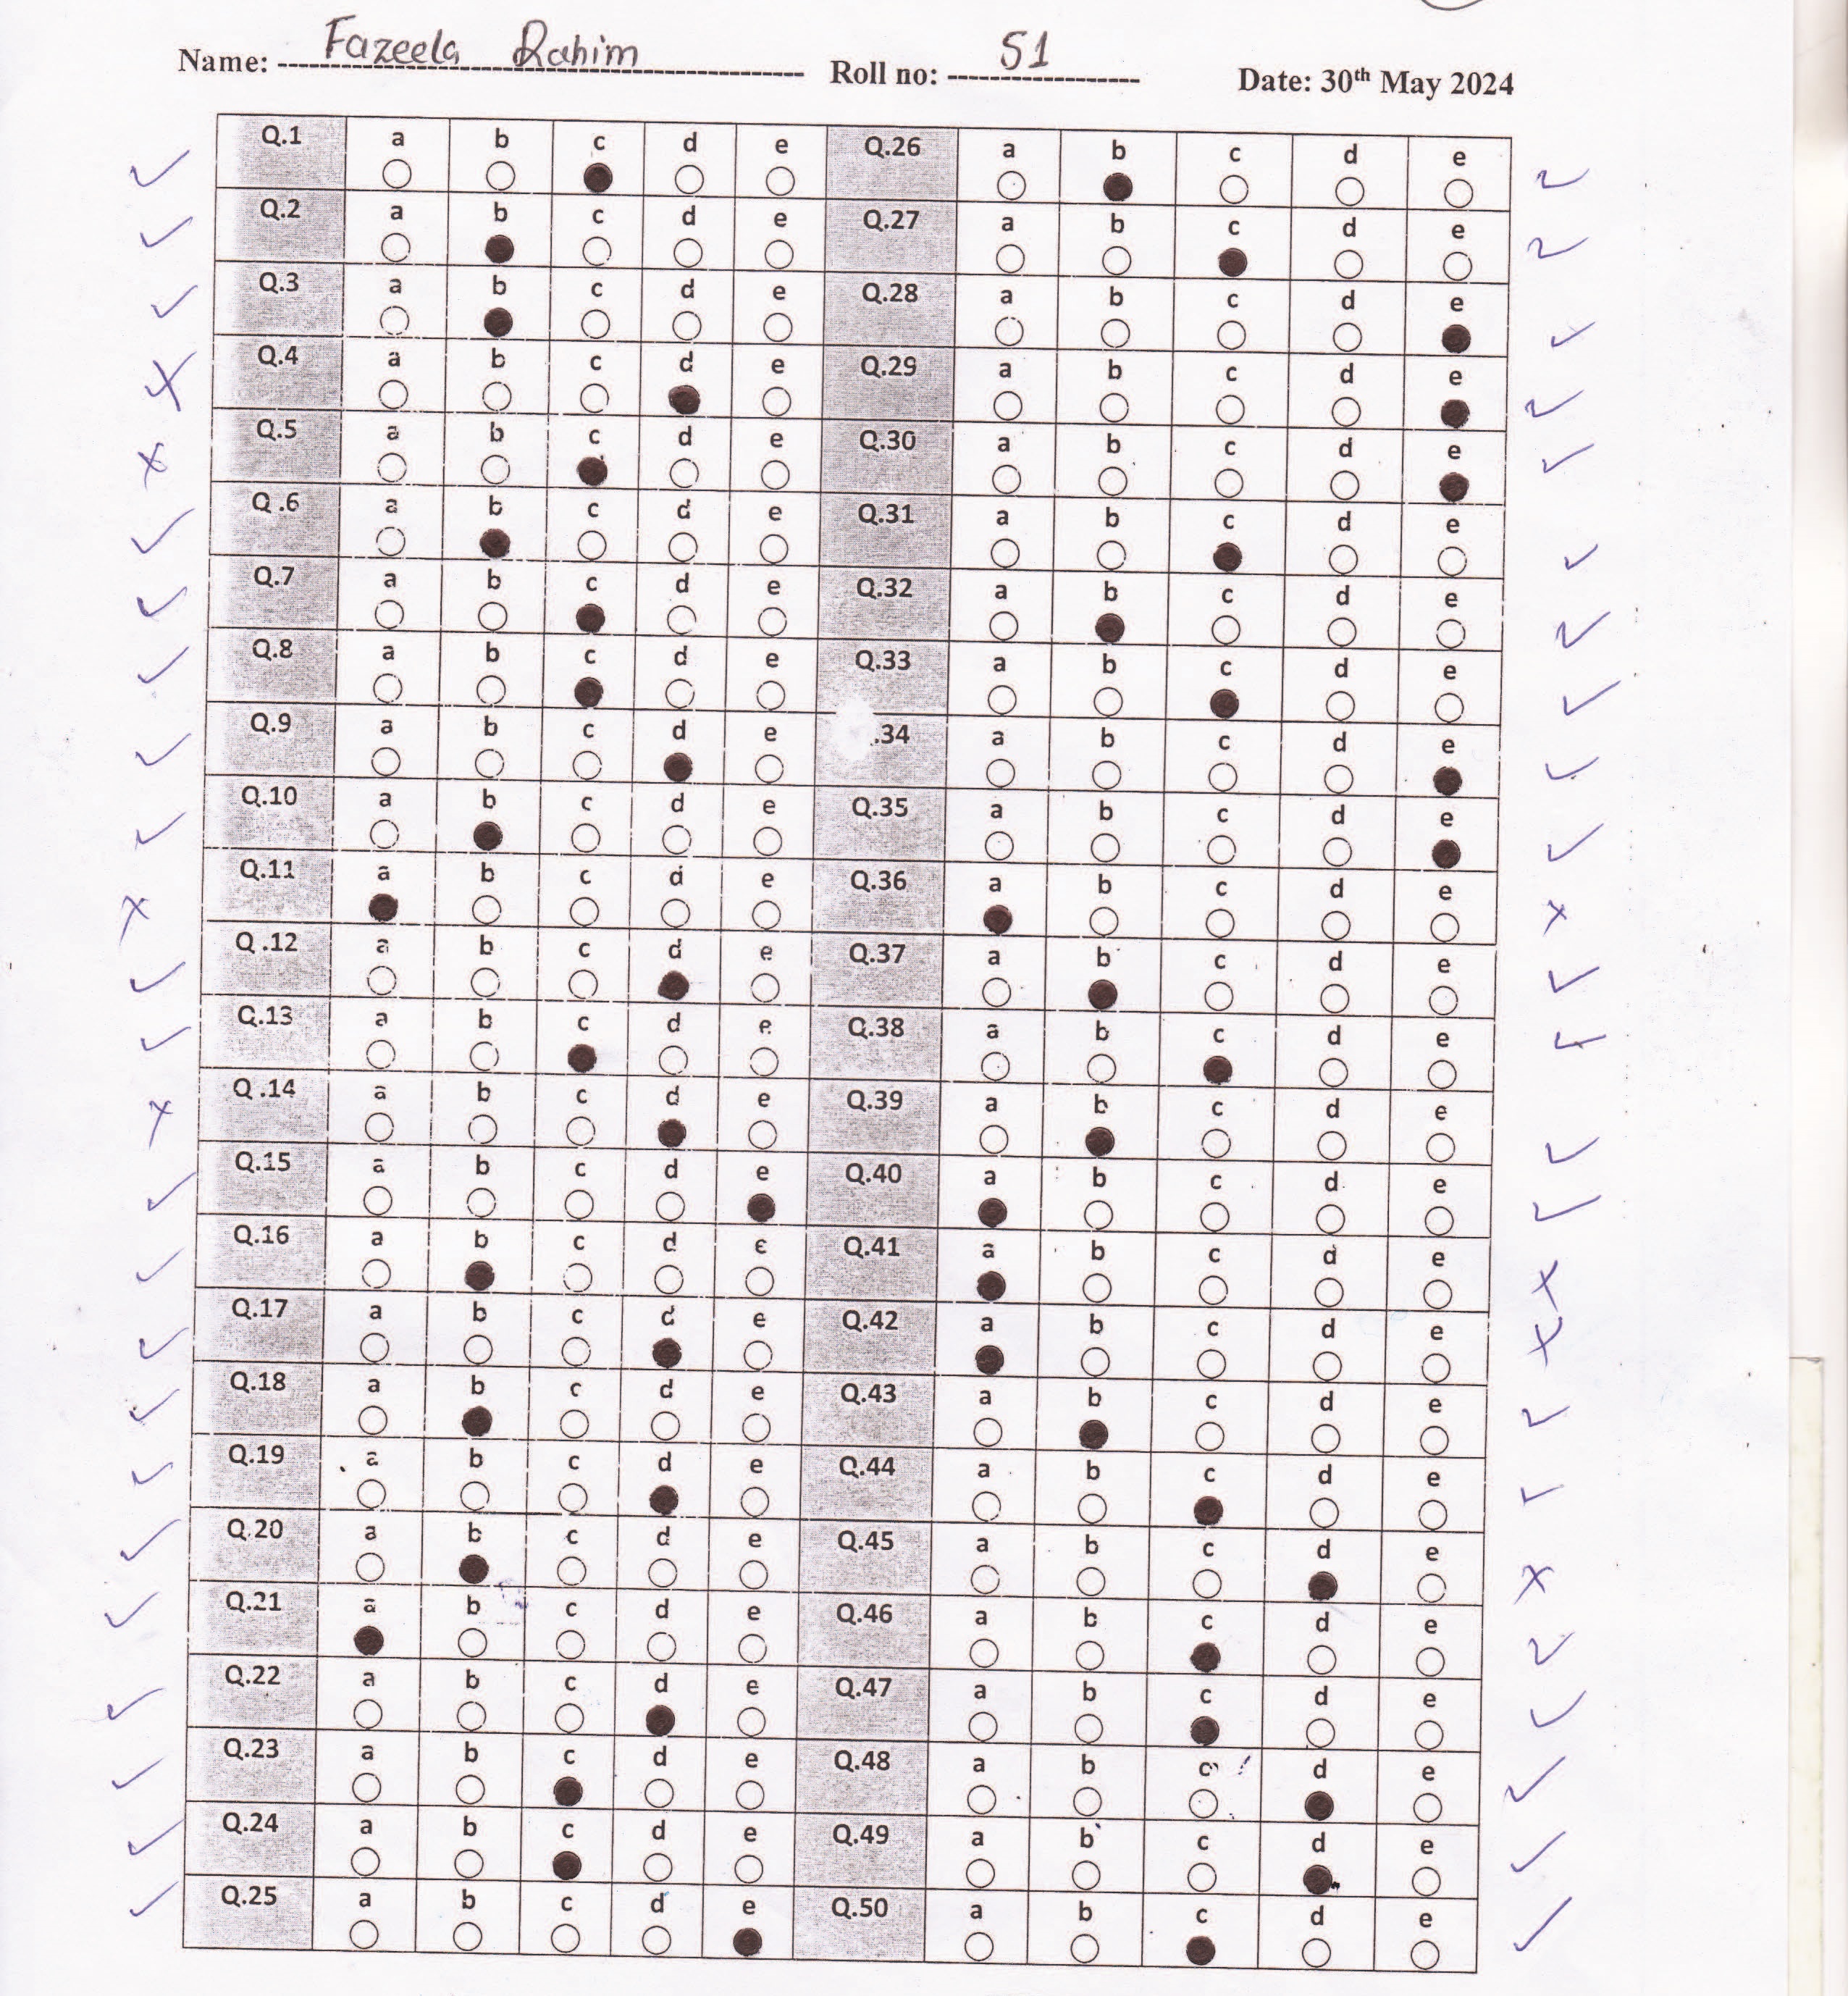 Name: Fazeela Rahim Roll no: 51 Date: 30th May 2024
Q.1 a b c d e Q.26 a b c d e
Q.2 a b c d e Q.27 a b c d e
Q.3 a b c d e Q.28 a b c d e
Q.4 a b c d e Q.29 a b c d e
Q.5 a b c d e Q.30 a b c d e
Q .6 a b c d e Q.31 a b c d e
Q.7 a b c d e Q.32 a b c d e
Q.8 a b c d e Q.33 a b c d e
Q.9 a b c d e .34 a b c d e
Q.10 a b c d e Q.35 a b c d e
Q.11 a b c d e Q.36 a b c d e
Q .12 a b c d e Q.37 a b c d e
Q.13 a b c d e Q.38 a b c d e
Q .14 a b c d e Q.39 a b c d e
Q.15 a b c d e Q.40 a b c d e
Q.16 a b c d e Q.41 a b c d e
Q.17 a b c d e Q.42 a b c d e
Q.18 a b c d e Q.43 a b c d e
Q.19 a b c d e Q.44 a b c d e
Q.20 a b c d e Q.45 a b c d e
Q.21 a b c d e Q.46 a b c d e
Q.22 a b c d e Q.47 a b c d e
Q.23 a b c d e Q.48 a b c d e
Q.24 a b c d e Q.49 a b c d e
Q.25 a b c d e Q.50 a b c d e